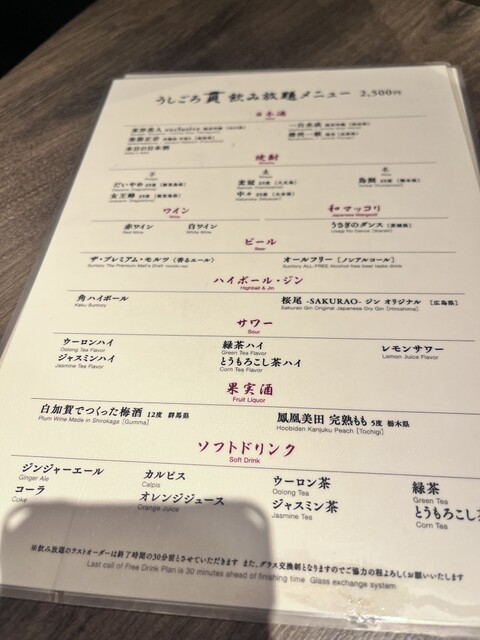 うしごろ 貫 飲み放題メニュー 2,500円
日本酒
一白水成
本日の日本酒
焼酎
芋 麦 米
だいやめ 25度 [鹿児島県]
ワイン
Wine
和マッコリ
Japanese Makgeolli
赤ワイン 白ワイン うさぎのダンス [宮崎県]
Red Wine White Wine Usagi No Dance [Miyazaki]
ビール
Beer
ザ・プレミアム・モルツ〈香るエール〉 オールフリー [ノンアルコール]
Suntory The Premium Malt's Draft Suntory ALL-FREE Alcohol-free beer taste drink
ハイボール・ジン
Highball & Jin
角ハイボール 桜尾 -SAKURAO- ジン オリジナル [広島県]
Kaku Suntory Sakurao Gin Original Japanese Dry Gin [Hiroshima]
サワー
Sour
ウーロンハイ 緑茶ハイ レモンサワー
Oolong Tea Flavor Green Tea Flavor Lemon Juice Flavor
ジャスミンハイ とうもろこし茶ハイ
Jasmine Tea Flavor Corn Tea Flavor
果実酒
Fruit Liquor
白加賀でつくった梅酒 12度 群馬県 鳳凰美田 完熟もも 5度 栃木県
Plum Wine Made in Shirokaga [Gumma] Hoobiden Kanjuku Peach [Tochigi]
ソフトドリンク
Soft Drink
ジンジャーエール カルピス ウーロン茶 緑茶
Ginger Ale Calpis Oolong Tea Green Tea
コーラ オレンジジュース ジャスミン茶 とうもろこし茶
Coke Orange Juice Jasmine Tea Corn Tea
※飲み放題のラストオーダーは終了時間の30分前とさせていただきます また、グラス交換制となりますのでご協力の程よろしくお願いいたします
Last call of Free Drink Plan is 30 minutes ahead of finishing time Glass exchange system